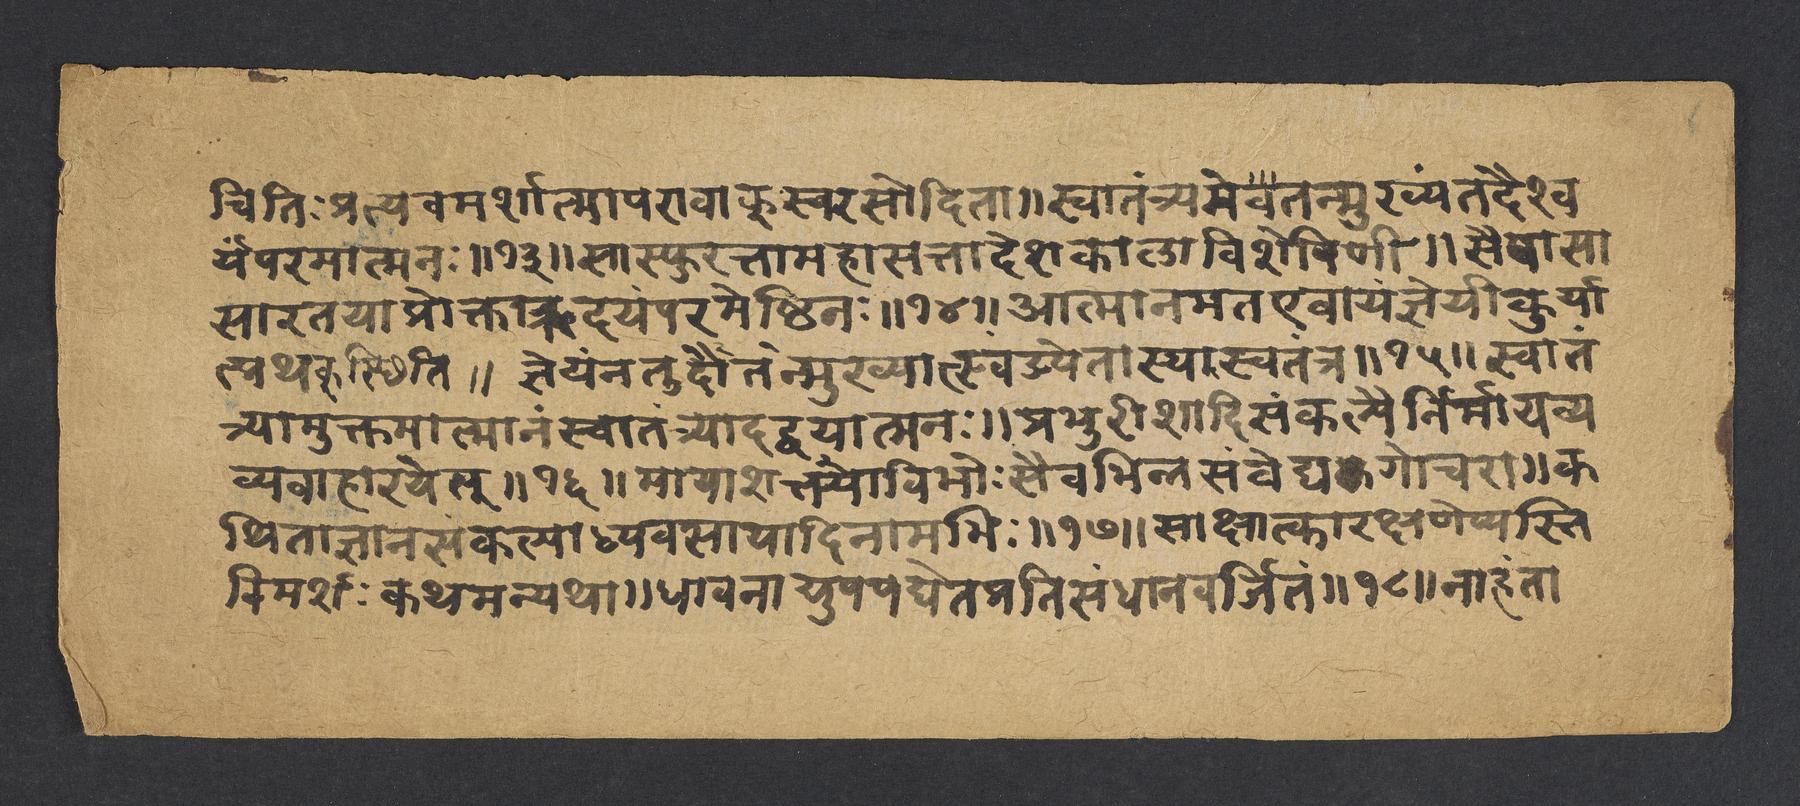 चितिःप्रत्यवमर्शात्मापरावाक्स्वरसोदिता॥स्वातंत्र्यमेवैतन्मुख्यंतदैश्व
र्यंपरमात्मनः॥१३॥सास्फुरत्तामहासत्तादेशकालाविशेषिणी॥सैषासा
सारतयाप्रोक्ताहृदयंपरमेष्ठिनः॥१४॥आत्मानमतएवायंज्ञेयीकुर्या
त्पृथक्स्थिति॥ज्ञेयंनतुतदौन्मुख्यात्खंड्येतास्यास्वतंत्र॥१५॥स्वातं
त्र्यामुक्तमात्मानंस्वातंत्र्यादद्वयात्मनः॥प्रभुरीशादिसंकल्पैर्निर्मायव्य
व्यवाहारयेत्॥१६॥मायाशक्त्यैयाविभोःसैवभिन्नसंवेद्यगोचरा॥क
थिताज्ञानसंकल्पाध्यवसायादिनामभिः॥१७॥साक्षात्कारक्षणेप्यस्ति
विमर्शःकथमन्यथा॥धावनाद्युपपद्येतप्रतिसंधानवर्जितं॥१८॥नाहंता